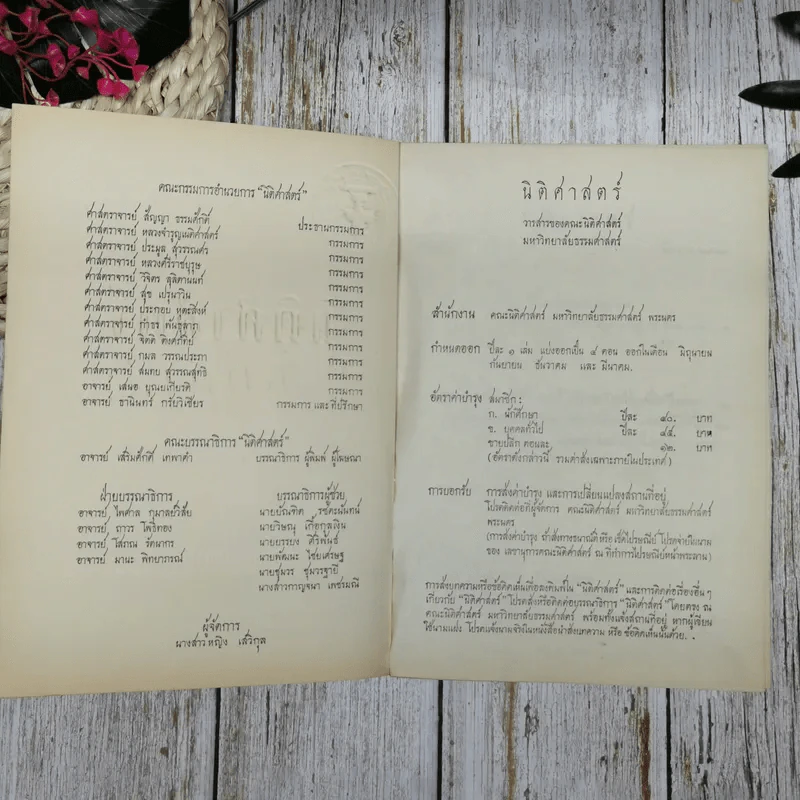 คณะกรรมการอำนวยการ "นิติศาสตร์"
ศาสตราจารย์ สัญญา ธรรมศักดิ์ ประธานกรรมการ
ศาสตราจารย์ หลวงจำรูญเนติศาสตร์ กรรมการ
ศาสตราจารย์ ประมูล สุวรรณศร กรรมการ
ศาสตราจารย์ หลวงศรีราชบุรุษ กรรมการ
ศาสตราจารย์ วิจิตร ลุลิตานนท์ กรรมการ
ศาสตราจารย์ สุข เปรุนาวิน กรรมการ
ศาสตราจารย์ ประกอบ หุตะสิงห์ กรรมการ
ศาสตราจารย์ กำธร พันธุลาภ กรรมการ
ศาสตราจารย์ จิตติ ติงศภัทิย์ กรรมการ
ศาสตราจารย์ กมล วรรณประภา กรรมการ
ศาสตราจารย์ สมทย สุวรรณสุทธิ กรรมการ
อาจารย์ เสนอ บุณยเกียรติ กรรมการ
อาจารย์ ธานินทร์ กรัยวิเชียร กรรมการ และ ที่ปรึกษา
คณะบรรณาธิการ "นิติศาสตร์"
อาจารย์ เสริมศักดิ์ เทพาคำ บรรณาธิการ ผู้พิมพ์ ผู้โฆษณา
ฝ่ายบรรณาธิการ
อาจารย์ ไพศาล กุมาลย์วิสัย
อาจารย์ ถาวร โพธิ์ทอง
อาจารย์ โสภณ รัตนากร
อาจารย์ มานะ พิทยาภรณ์
บรรณาธิการผู้ช่วย
นายบัณฑิต รชตะนันทน์
นายวิษณุ เครืองาม
นายบรรยง ศิริพันธ์
นายพัฒนะ ไชยเศรษฐ
นายชุมวร ชุมวรฐายี
นางสาวกาญจนา เพชรมณี
ผู้จัดการ
นางสาว หญิง เสวิกุล
นิติศาสตร์
วารสารของคณะนิติศาสตร์
มหาวิทยาลัยธรรมศาสตร์
สำนักงาน คณะนิติศาสตร์ มหาวิทยาลัยธรรมศาสตร์ พระนคร
กำหนดออก ปีละ ๑ เล่ม แบ่งออกเป็น ๔ ตอน ออกในเดือน มิถุนายน
กันยายน ธันวาคม และ มีนาคม.
อัตราค่าบำรุง สมาชิก :
ก. นักศึกษา ปีละ ๔๐. บาท
ข. บุคคลทั่วไป ปีละ ๔๕. บาท
ขายปลีก ตอนละ ๑๒. บาท
(อัตราดังกล่าวนี้ รวมค่าส่งเฉพาะภายในประเทศ)
การบอกรับ การส่งค่าบำรุง และการเปลี่ยนแปลงสถานที่อยู่
โปรดติดต่อที่ผู้จัดการ คณะนิติศาสตร์ มหาวิทยาลัยธรรมศาสตร์
พระนคร
(การส่งค่าบำรุง ถ้าส่งทางธนาณัติ หรือ เช็คไปรษณีย์ โปรดจ่ายในนาม
ของ เลขานุการคณะนิติศาสตร์ ณ ที่ทำการไปรษณีย์หน้าพระลาน)
การส่งบทความหรือข้อคิดเห็นเพื่อลงพิมพ์ใน "นิติศาสตร์" และการติดต่อเรื่องอื่น ๆ
เกี่ยวกับ "นิติศาสตร์" โปรดส่งหรือติดต่อบรรณาธิการ "นิติศาสตร์" โดยตรง ณ
คณะนิติศาสตร์ มหาวิทยาลัยธรรมศาสตร์ พร้อมทั้งแจ้งสถานที่อยู่ หากผู้เขียน
ใช้นามแฝง โปรดแจ้งนามจริงในหนังสือนำส่งบทความ หรือ ข้อคิดเห็นนั้นด้วย. .